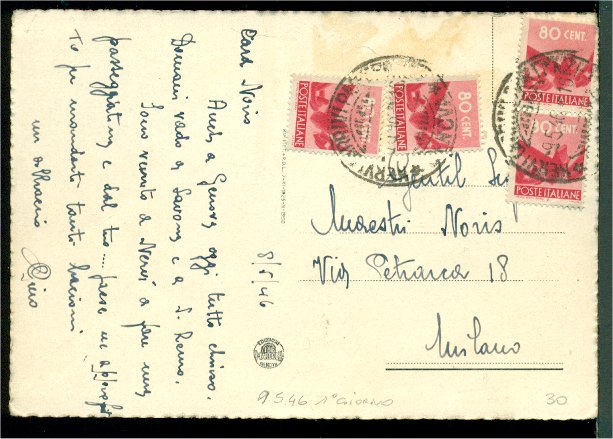 Cara Noris
Anch a Genova oggi tutto chiuso.
Domani vado a Savona e a S. Remo.
Sono venuto a Nervi a fare una
passeggiatina e dal tuo... paese ne approfitto
To per mandarti tanti bacioni
un abbraccio
8/5/46
80 CENT.
POSTE ITALIANE
80 CENT.
POSTE ITALIANE
POSTE ITALIANE
80 CENT.
POSTE ITALIANE
NERVI
Gentil
Maestri Noris
Via Petrarca 18
Milano
9.5.46 1° GIORNO
30